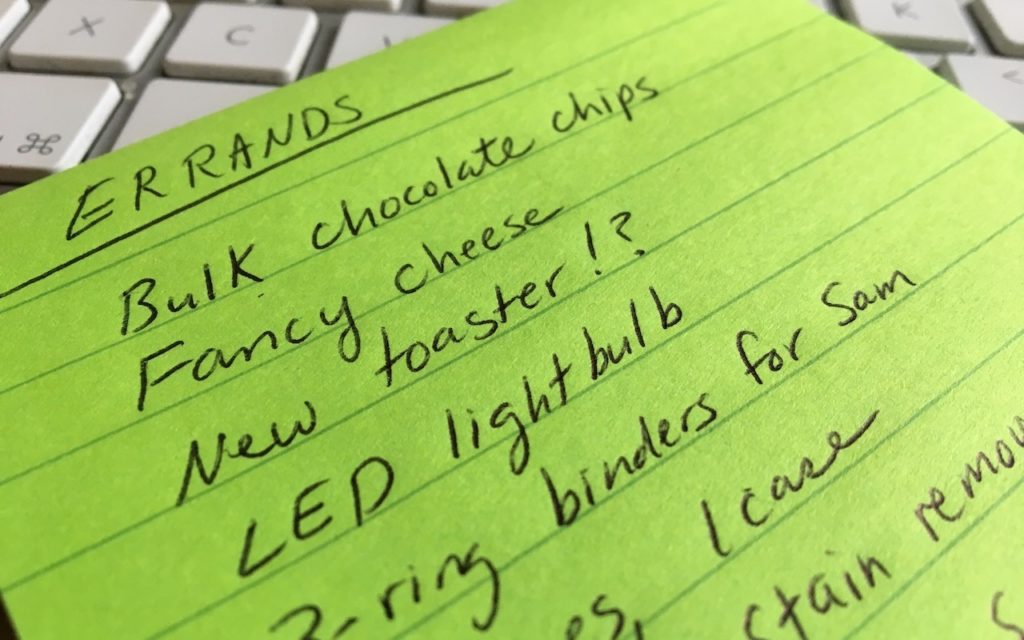 X
C
K
⌘
ERRANDS
Bulk chocolate chips
Fancy cheese
New toaster!?
LED lightbulb
3-ring binders for Sam
1 case
stain